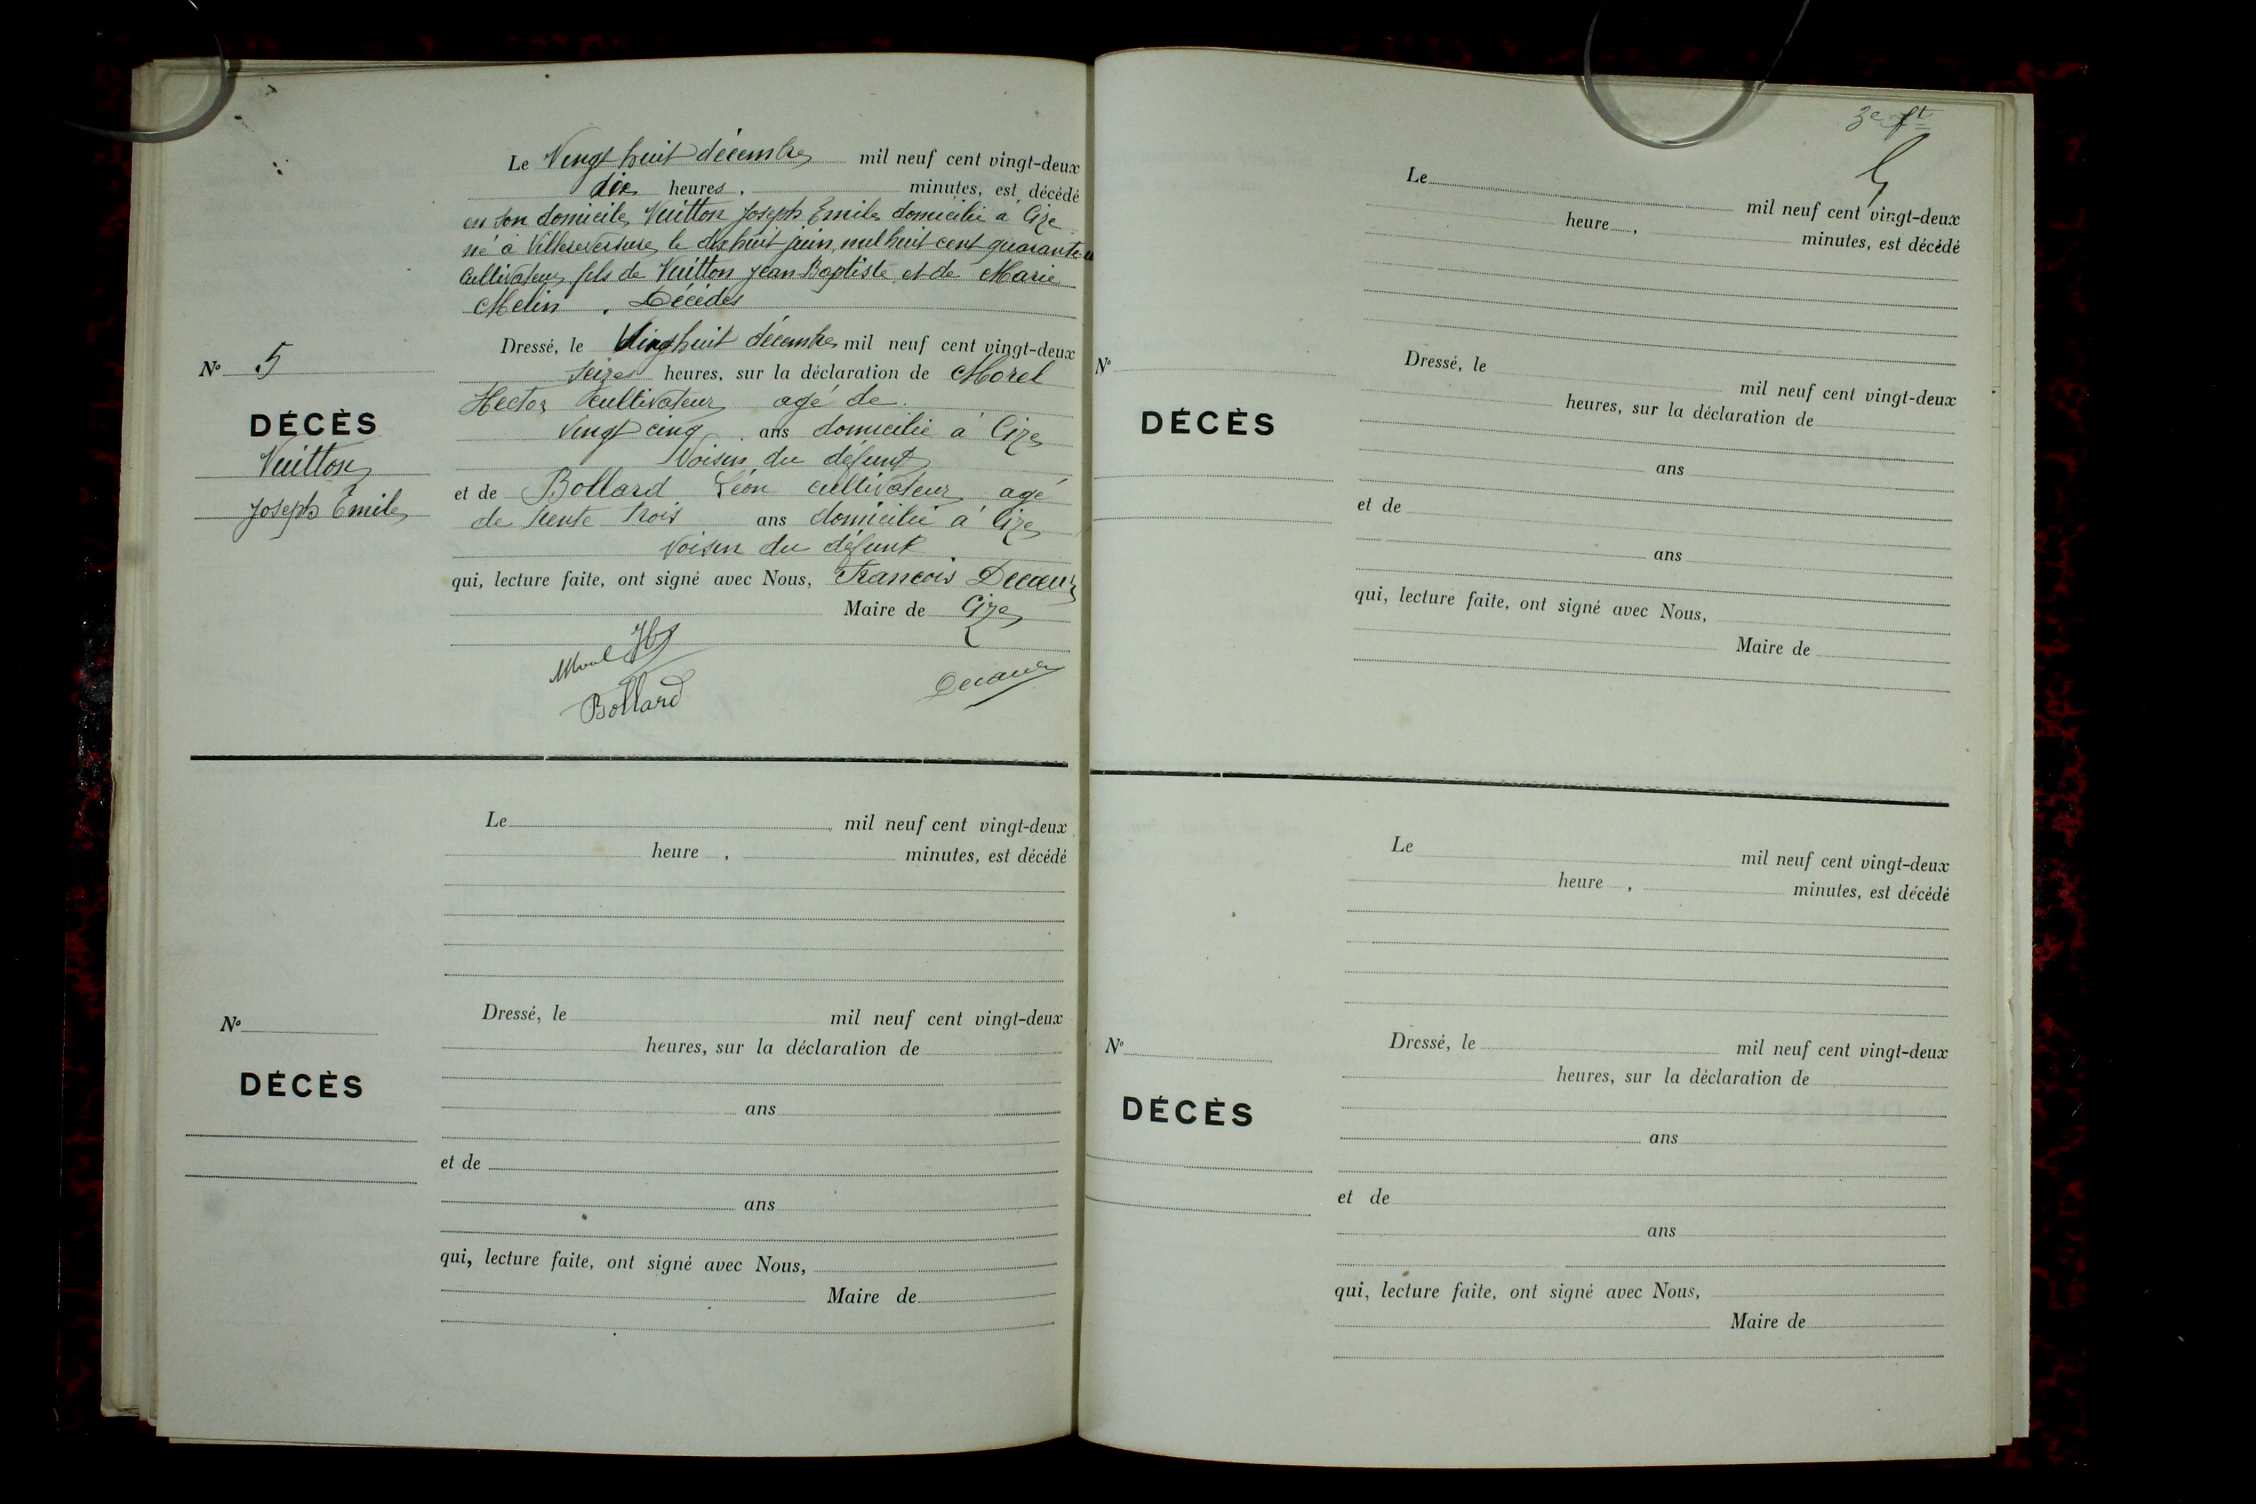 Le Vingt huit décembre mil neuf cent vingt-deux
dix heures, minutes, est décédé
en son domicile, Vuitton Joseph Emile domicilié à Cize
né à Villereversure le dix huit juin mil huit cent quarante
cultivateur, fils de Vuitton Jean-Baptiste et de Marie
Melin. Décédés
Dressé, le Vingt huit décembre mil neuf cent vingt-deux
seize heures, sur la déclaration de Morel
Hector cultivateur agé de
vingt cinq ans domicilié à Cize
Voisin du défunt
et de Bollard Léon cultivateur agé
de trente trois ans domicilié à Cize
Voisin du défunt
qui, lecture faite, ont signé avec Nous, François Decoeur
Maire de Cize
Morel
Bollard
Decoeur
N° 5
DÉCÈS
Vuitton
Joseph Emile
Le mil neuf cent vingt-deux
heure , minutes, est décédé
Dressé, le mil neuf cent vingt-deux
heures, sur la déclaration de
ans
et de
ans
qui, lecture faite, ont signé avec Nous,
Maire de
N°
DÉCÈS
3e ft
Le mil neuf cent vingt-deux
heure , minutes, est décédé
Dressé, le mil neuf cent vingt-deux
heures, sur la déclaration de
ans
et de
ans
qui, lecture faite, ont signé avec Nous,
Maire de
N°
DÉCÈS
Le mil neuf cent vingt-deux
heure , minutes, est décédé
Dressé, le mil neuf cent vingt-deux
heures, sur la déclaration de
ans
et de
ans
qui, lecture faite, ont signé avec Nous,
Maire de
N°
DÉCÈS